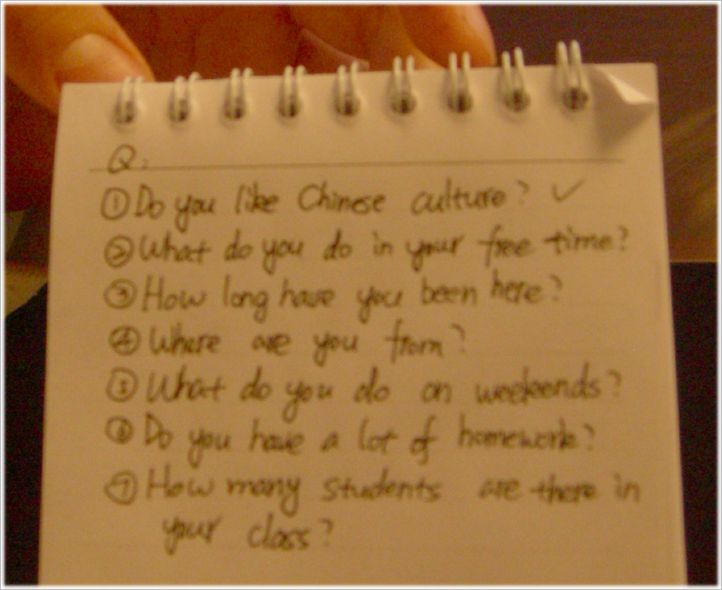 Q:
① Do you like Chinese culture? ✓
② What do you do in your free time?
③ How long have you been here?
④ Where are you from?
⑤ What do you do on weekends?
⑥ Do you have a lot of homework?
⑦ How many students are there in
your class?